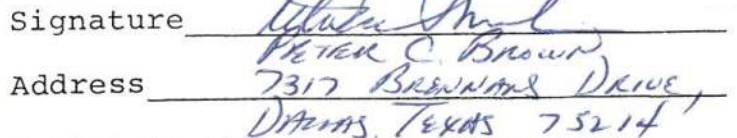 Signature
PETER C. BROWN
Address 7317 BRENNANS DRIVE,
DALLAS, TEXAS 75214